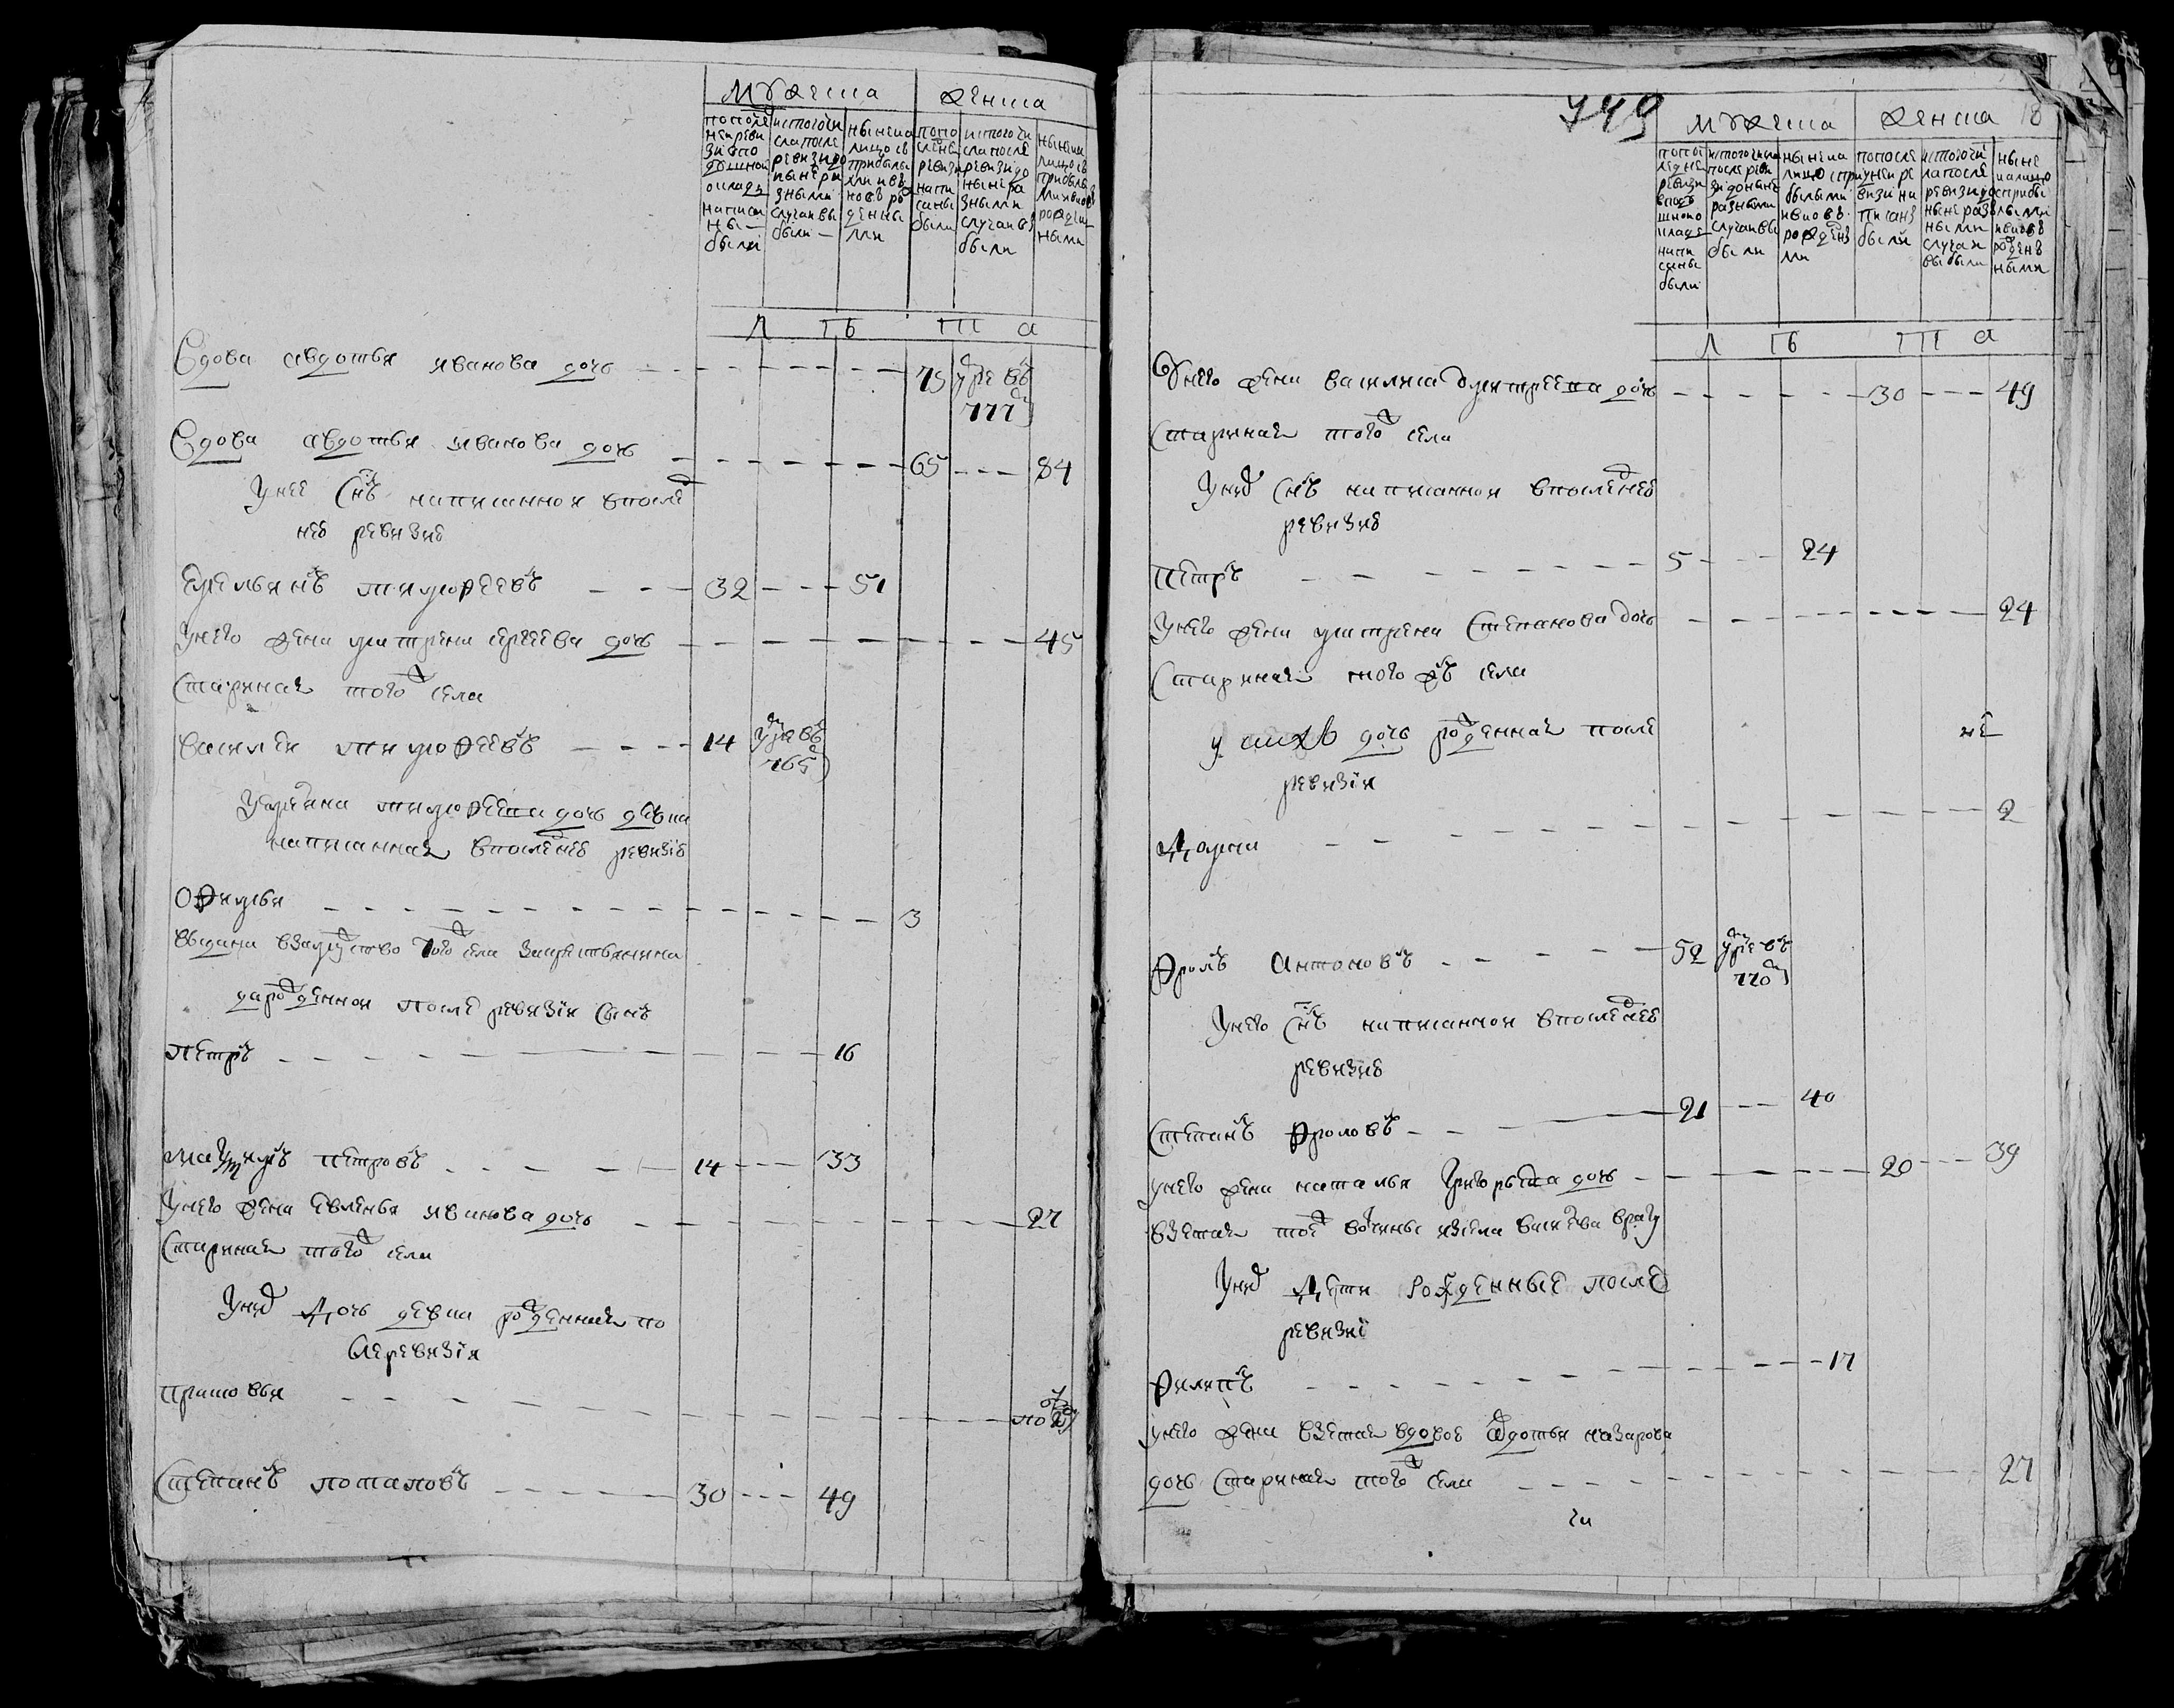 мужеска женска
по последней ревизи в подушной оклад написаны были
ис того числа после ревизи до ныне разными случаи выбыли
ныне на лицо с прибылыми и вновь рожденными
по последней ревизи написаны были
ис того числа после ревизи до ныне разными случаи выбыли
ныне на лицо с прибылыми и вновь рожденными
л ть т а
Вдова авдотья иванова дочь 75 умре въ 777м
Вдова авдотья иванова дочь 65 84
Унее снъ написанной в после
дней ревизие
Емельянъ тимофеевъ 32 51
Унего жена матрена сергеева дочь 45
Старинная того ж села
василей тимофеевъ 14 умре въ 765м
тимофеева дочь девка
написанная в последней ревизие
Офимья 3
выдана взамужство того ж села за крестьянина
да рожденной после ревизии сынъ
петръ 16
петровъ 14 33
Унего жена евленья иванова дочь 27
Старинная того ж села
Уних дочь девка рожденная по
сле ревизии
прасковья
Степанъ потаповъ 30 49
749
мужеска женска 18
по последней ревизи в подушной окладе написаны были
ис того числа после ревизи до ныне разными случаи выбыли
ныне на лицо с прибылыми и вновь рожденными
по последней ревизи написаны были
ис того числа после ревизи до ныне разными случаи выбыли
ныне на лицо с прибылыми и вновь рожденными
л ть т а
Унего жена василиса дмитреева дочь 30 49
Старинная того ж села
Уних снъ написанной в последней
ревизие
петръ 5 24
Унего жена матрена Степанова дочь 24
Старинная того жъ села
у них дочь рожденная после
ревизии
Домна 2
Фролъ Антоновъ 52 умре въ 770м
Унего снъ написанной в последней
ревизие
Степанъ Фроловъ 21 40
унего жена наталья Григорьева дочь 20 39
взетая той ж вотчины изсела врагу
Уних дети рожденные после
ревизии
Филипъ 17
унего жена взетая вдовое авдотья назарова
дочь Старинная того ж села 27